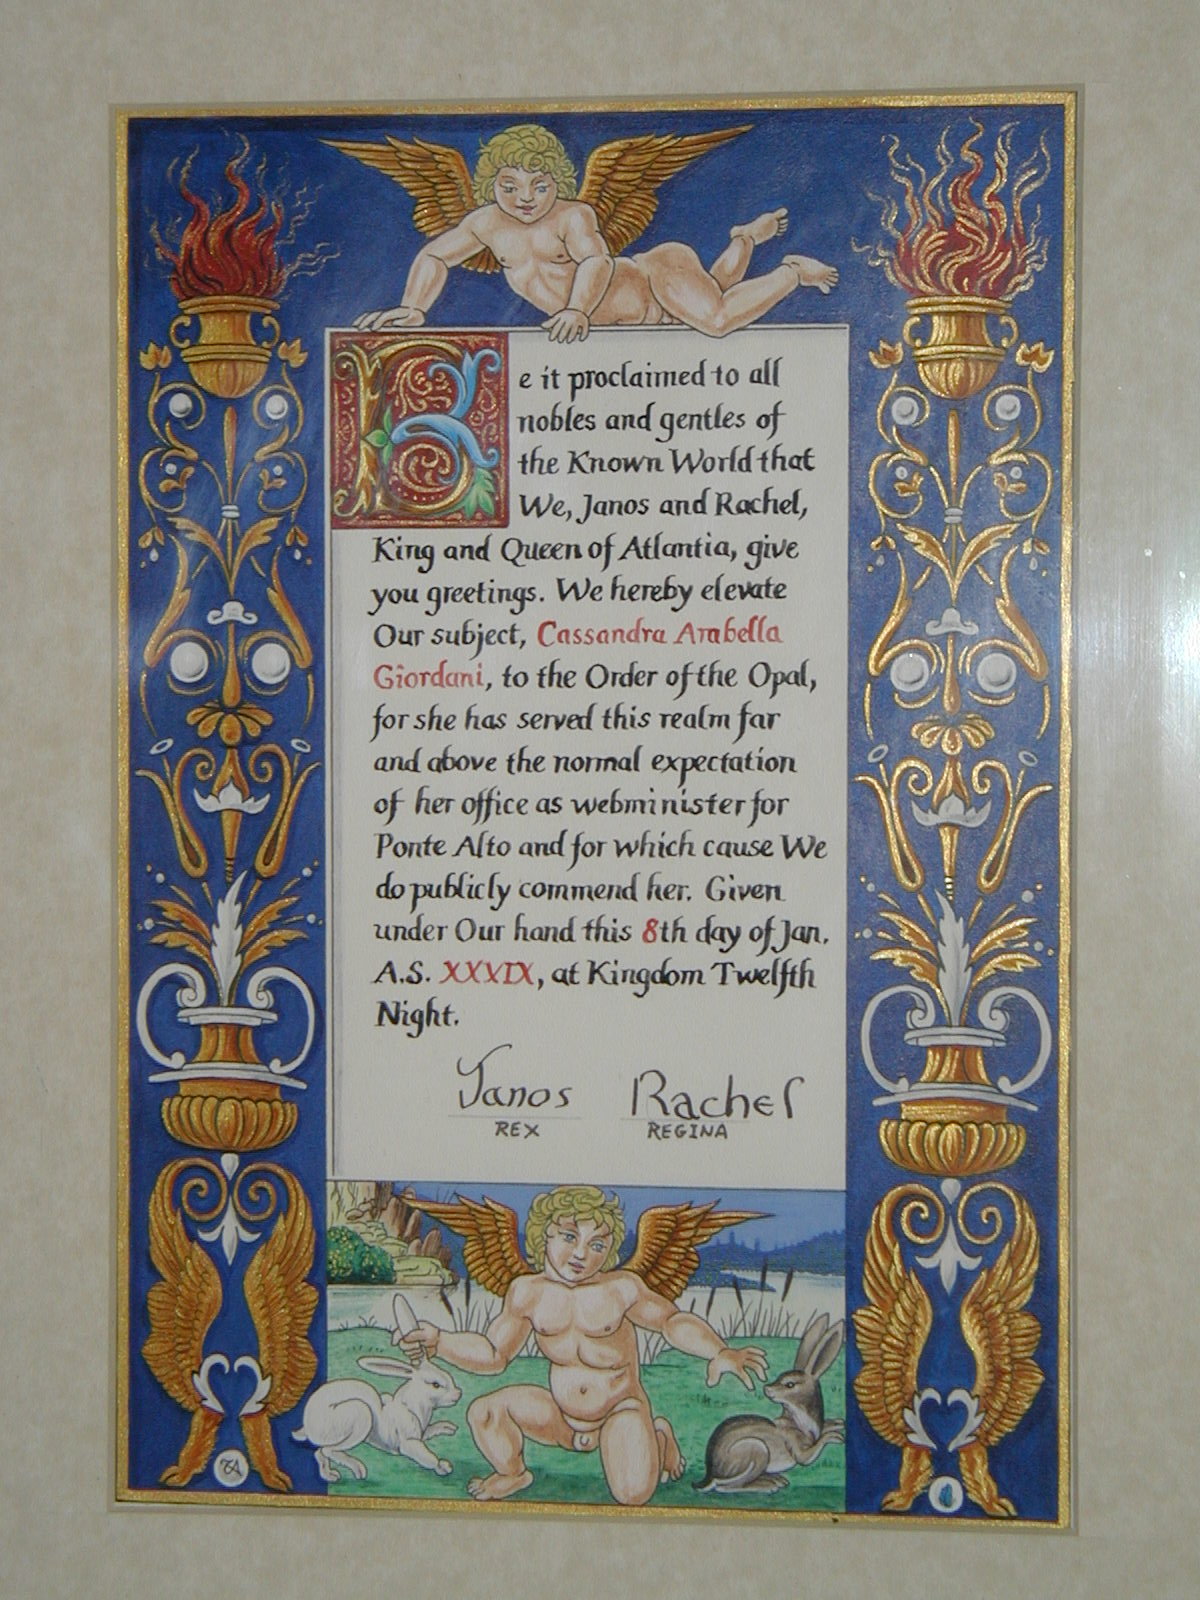 Be it proclaimed to all
nobles and gentles of
the Known World that
We, Janos and Rachel,
King and Queen of Atlantia, give
you greetings. We hereby elevate
Our subject, Cassandra Arabella
Giordani, to the Order of the Opal,
for she has served this realm far
and above the normal expectation
of her office as webminister for
Ponte Alto and for which cause We
do publicly commend her. Given
under Our hand this 8th day of Jan.
A.S. XXXIX, at Kingdom Twelfth
Night.
Janos Rachel
REX REGINA